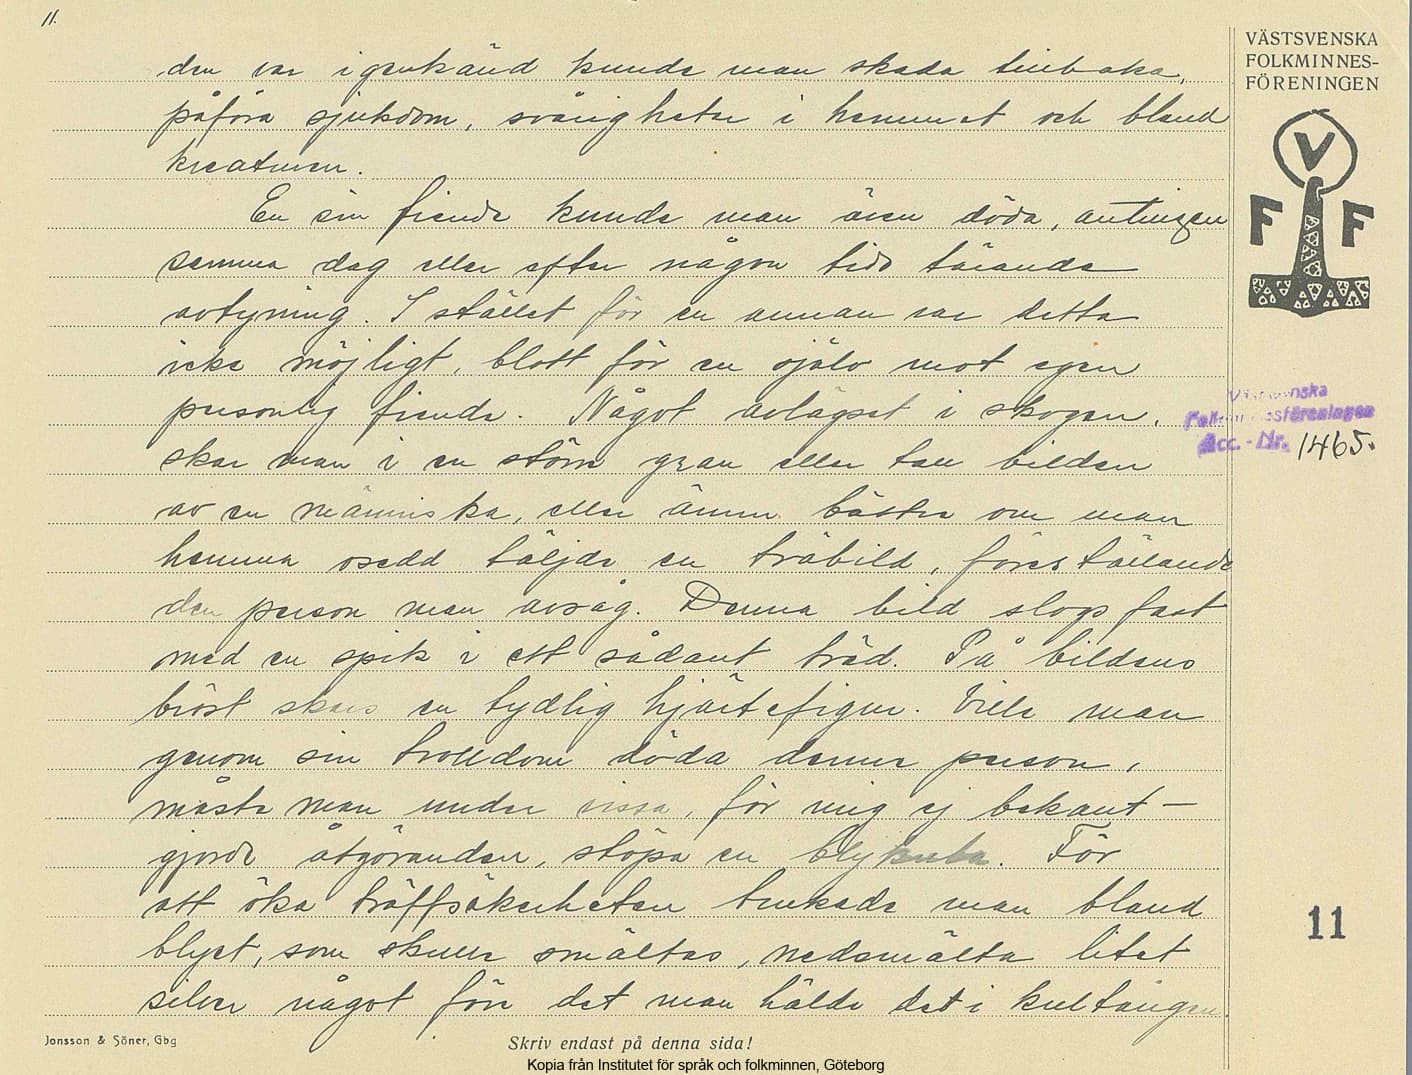 11.
VÄSTSVENSKA
FOLKMINNES-
FÖRENINGEN
V
F F
den var igenkänd kunde man skada tillbaka,
påföra sjukdom, svårigheter i hemmet och bland
kreaturen.
En sin fiende kunde man även döda, antingen
samma dag eller efter någon tids tärande
avtyning. I stället för en annan var detta
icke möjligt, blott för en själv mot egen
personlig fiende. Något avlägset i skogen,
skar man i en större gran eller tall bilden
av en människa, eller ännu bättre om man
hemma osedd täljde en träbild, föreställande
den person man avsåg. Denna bild slogs fast
med en spik i ett sådant träd. På bildens
bröst skars en tydlig hjärtefigur. Ville man
genom sin trolldom döda denne person,
måste man under vissa, för mig ej bekant-
gjorde åtgöranden, stöpa en blykula. För
att öka träffsäkerheten brukade man bland
blyet, som skulle smältas, nedsmälta litet
silver något förr det man hälde det i kultången
Västsvenska
Folkminnesföreningen
Acc.-Nr. 1465.
11
Jonsson & Söner, Gbg
Skriv endast på denna sida!
Kopia från Institutet för språk och folkminnen, Göteborg